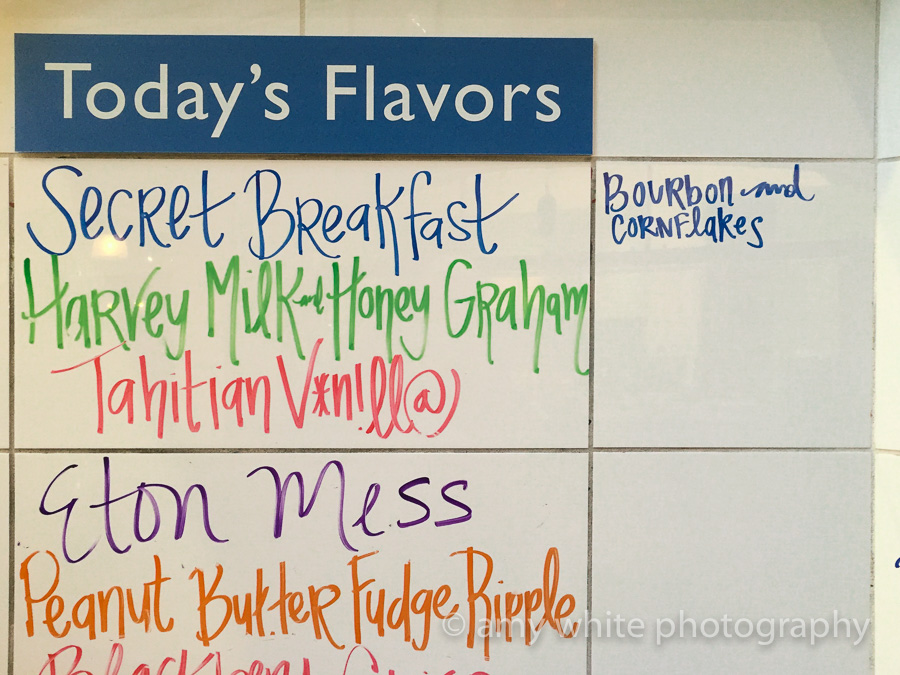 Today's Flavors
Secret Breakfast
Bourbon and
cornflakes
Harvey Milk and Honey Graham
Tahitian V*n!ll@
Eton Mess
Peanut Butter Fudge Ripple
© amy white photography